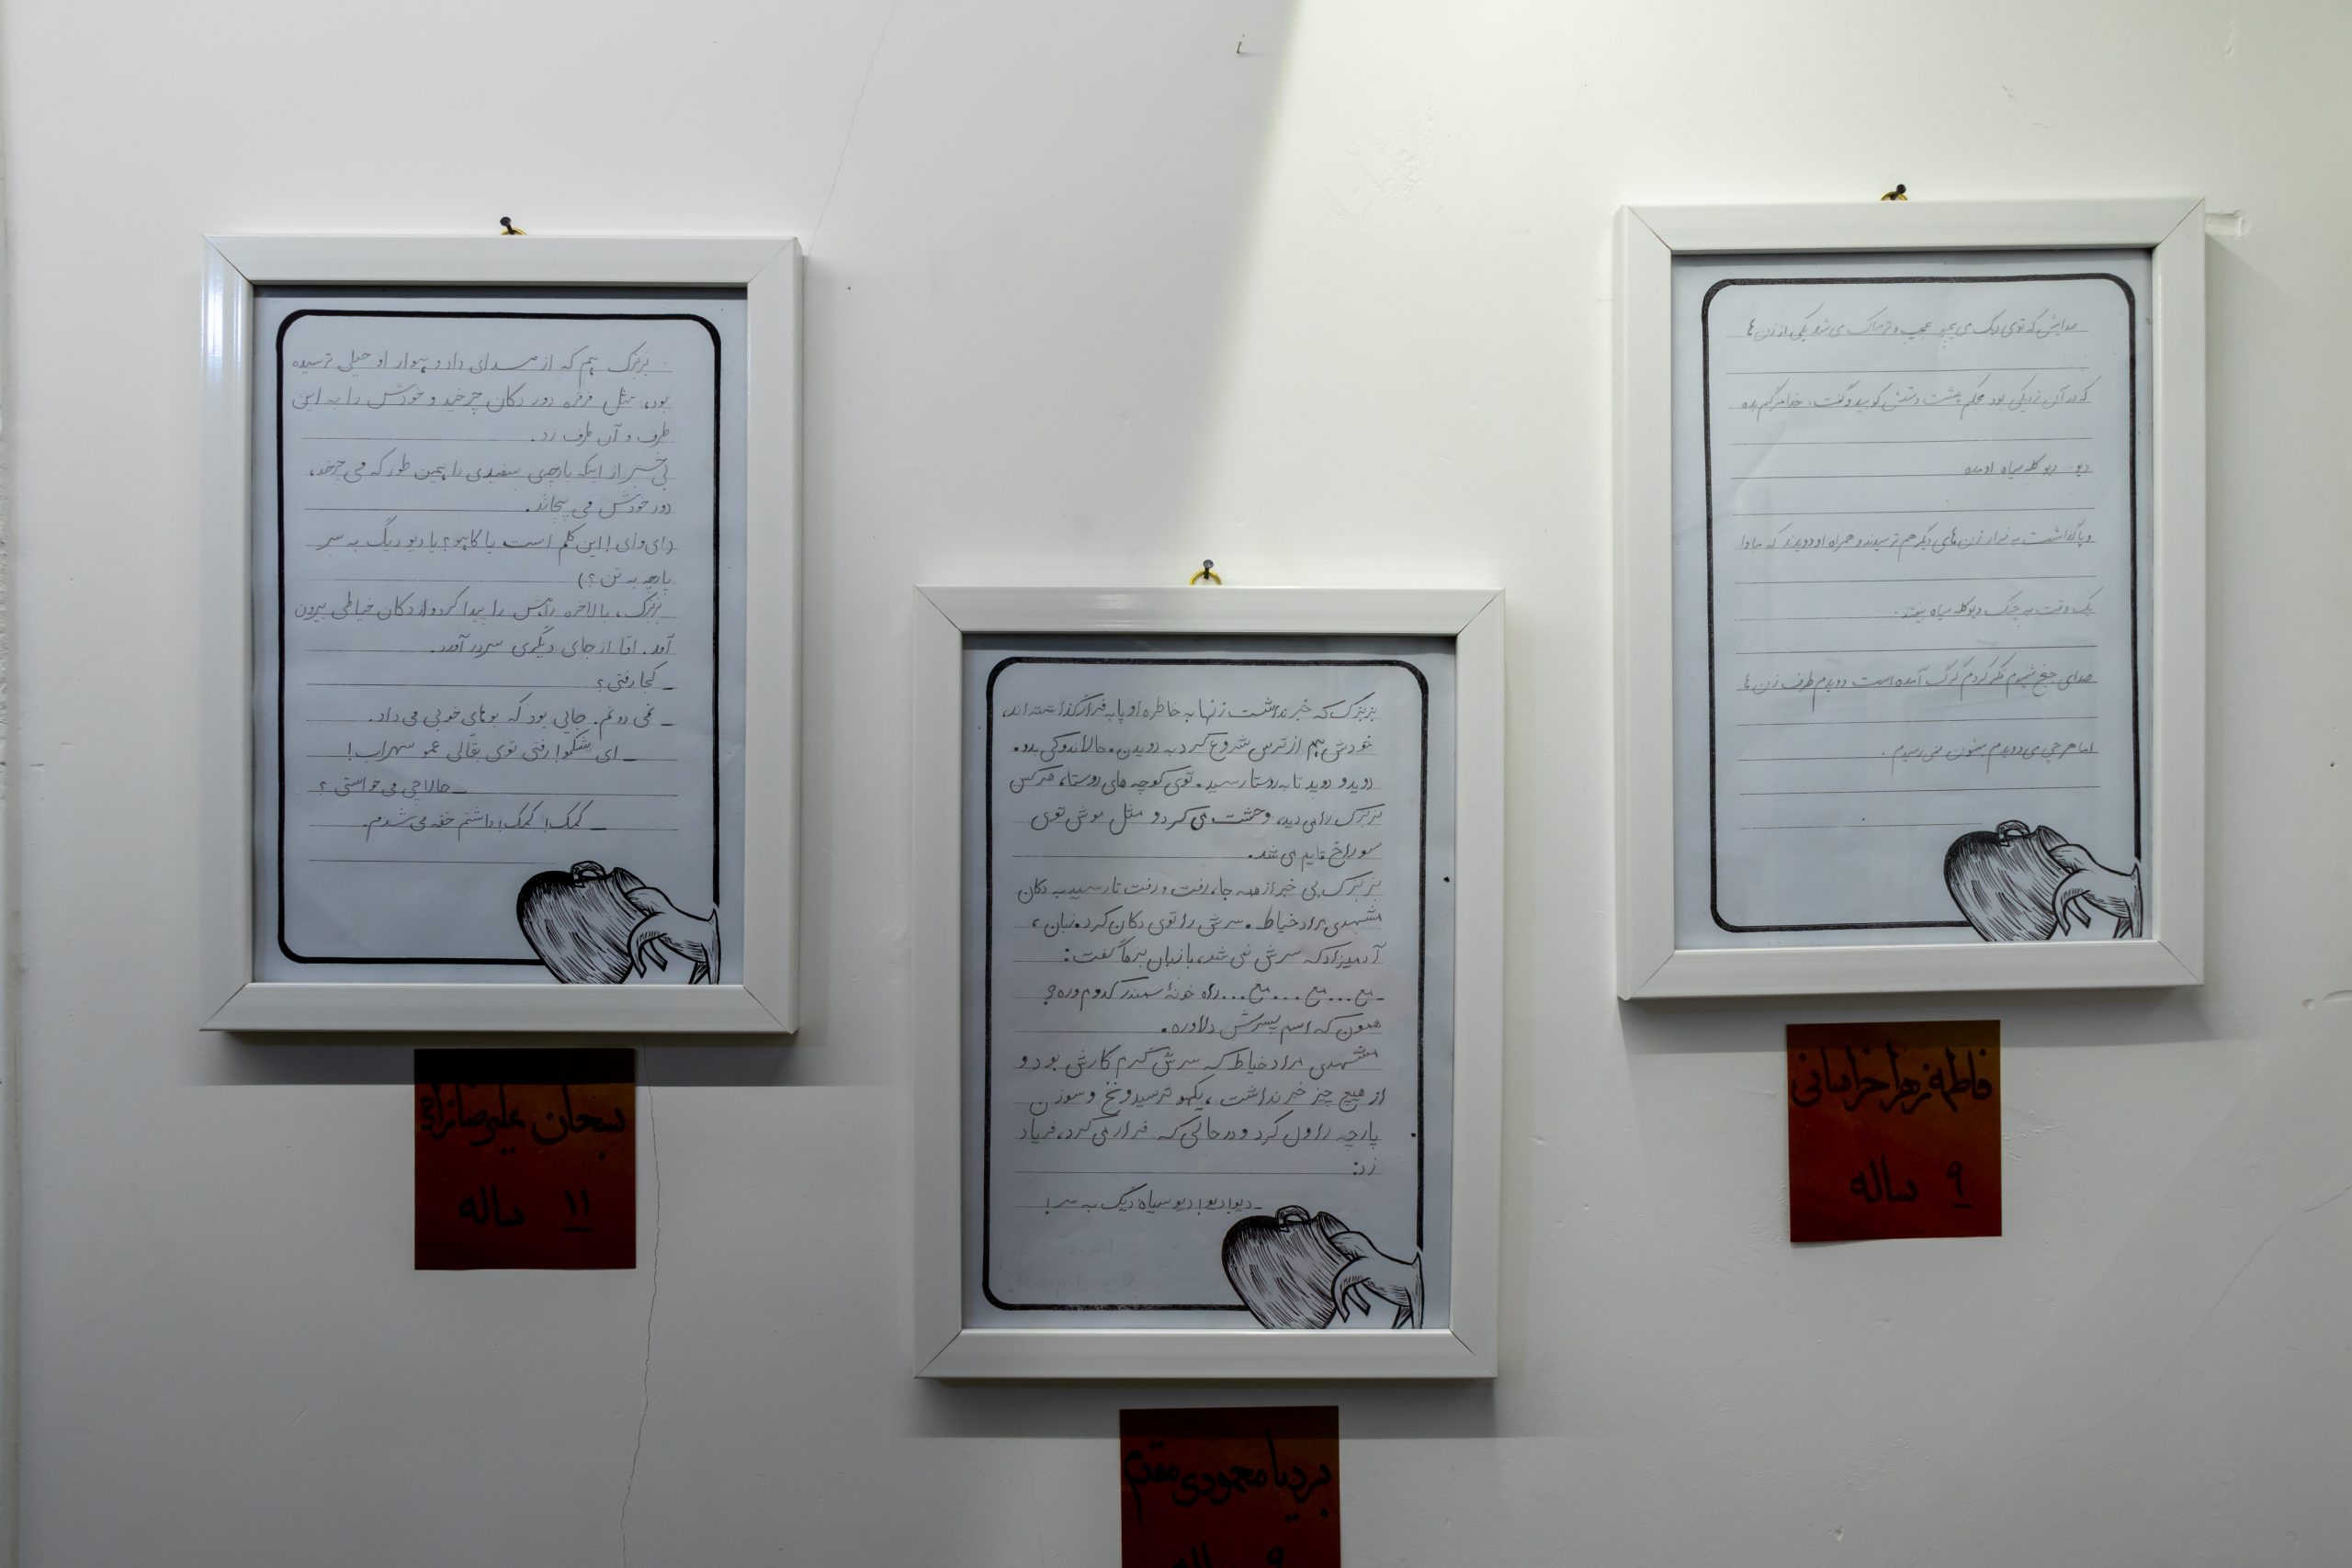 بزبزک هم که از صدای داد و هوار او خیلی ترسیده
بود، مثل فرفره دور دکان چرخید و خودش را به این
طرف و آن طرف زد.
بی خبر از اینکه پارچه‌ی سفیدی را همین طور که می چرخد،
دور خودش می پیچاند.
(وای وای! این کلم است یا کاهو؟ یا دیو دیگ به سر
پارچه به تن؟)
بزبزک، بالاخره راهش را پیدا کرد و از دکان خیاطی بیرون
آمد. امّا از جای دیگری سر در آورد.
_ کجا رفتی؟
_ نمی دونم. جایی بود که بوهای خوبی می داد.
_ ای شکمو! رفتی توی بقّالی عمو سهراب!
_ حالا چی می خواستی؟
_ کمک! کمک! داشتم خفه می شدم.
سبحان علیرضازاده
۱۱ ساله
بزبزک که خبر نداشت زنها به خاطره او پا به فرار گذاشته اند،
خودش هم از ترس شروع کرد به دویدن. حالا ندو کی بدو.
دوید و دوید تا به روستا رسید. توی کوچه های روستا، هرکس
بزبزک را می دید، وحشت می کرد و مثل موش توی
سوراخ قایم می شد.
بزبزک بی خبر از همه جا، رفت و رفت تا رسید به دکان
مشهدی مراد خیاط. سرش را توی دکان کرد. زبان،
آدمیزاد که سرش نمی شد، با زبان بزها گفت:
_ مع... مع... مع... راه خونهٔ سمندر کدوم وره؟
همون که اسم پسرش دلاوره.
مشهدی مراد خیاط که سرش گرم کارش بود و
از هیچ چیز خبر نداشت، یکهو ترسید و نخ و سوزن
پارچه را ول کرد و در حالی که فرار می کرد، فریاد
زد:
_ دیو! دیو! دیو سیاه دیگ به سر!
بردیا محمودی مقدم
۹ ساله
صدایش که توی دیگ می پیچید عجیب و ترسناک می شد یکی از زن ها
که در آن نزدیکی بود محکم پشت دستش کوبید و گفت: خدا مرگم بده
دیو... دیو کله سیاه اومده
و پا گذاشت به فرار زن های دیگر هم ترسیدند و همراه او دویدند که مبادا
یک وقت به چنگ دیو کله سیاه بیفتند.
صدای جیغ شنیدم فکر کردم گرگ آمده است دویدم طرف زن ها
اما هر چی می دویدم بهشون نمی رسیدم.
فاطمه زهرا خراسانی
۹ ساله